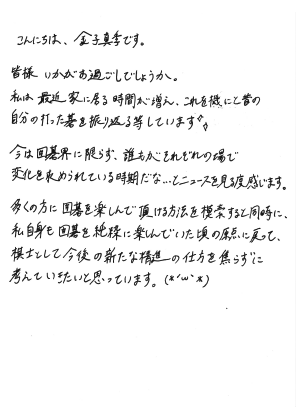 こんにちは、金子真季です。
皆様 いかがお過ごしでしょうか。
私は 最近 家に居る時間が増え、これを機にと昔の
自分の打った碁を振り返る等しています
今は囲碁界に限らず、誰もがそれぞれの場で
変化を求められている時期だな…とニュースを見る度感じます。
多くの方に囲碁を楽しんで頂ける方法を模索すると同時に、
私自身も囲碁を純粋に楽しんでいた頃の原点に戻って、
棋士として今後の新たな精進の仕方を焦らずに
考えていきたいと思っています。(*'ω'*)